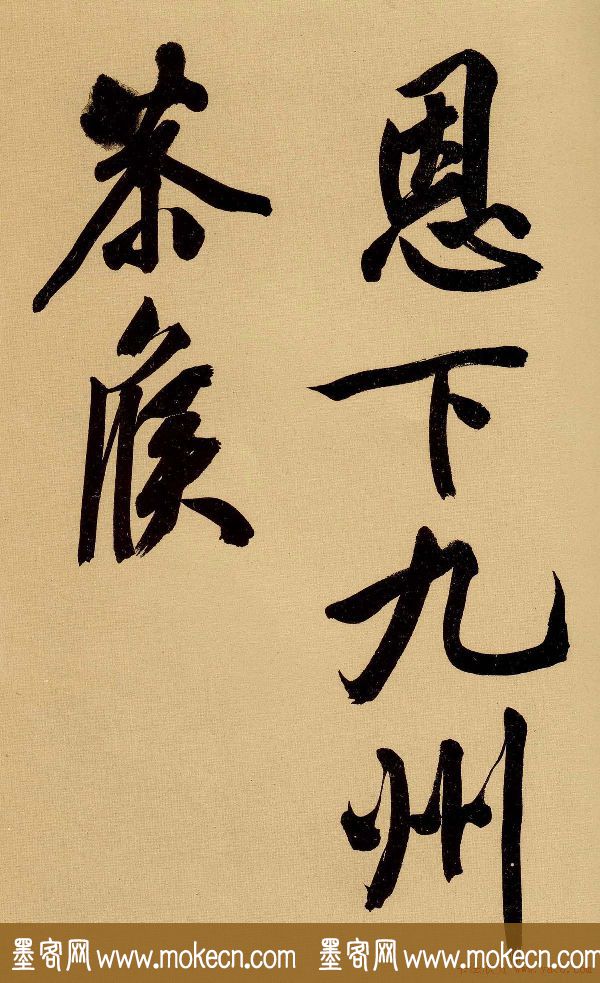 恩下九州
茶候
墨客网 www.mokecn.com 墨客网 www.mokecn.com